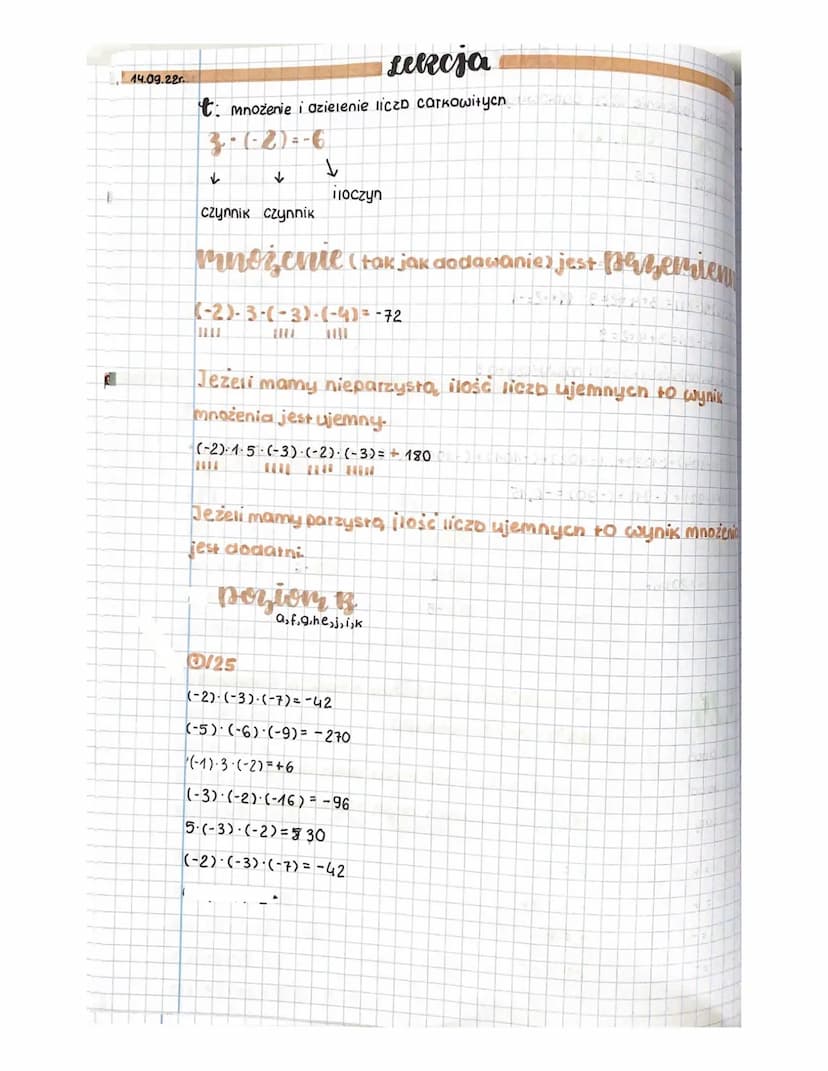 lekcja
14.09.22r.
t: mnożenie i dzielenie liczb całkowitych
3·(-2)=-6
iloczyn
czynnik czynnik
mnożenie (tak jak dodawanie) jest przemienn
(-2)·3·(-3)·(-4)= -72
Jeżeli mamy nieparzystą ilość liczb ujemnych to wynik
mnożenia jest ujemny.
(-2)·1·5·(-3)·(-2)·(-3)= + 180
Jeżeli mamy parzystą ilość liczb ujemnych to wynik mnożenia
jest dodatni.
poziom B
a,f,g,h e,j,i,k
①/25
(-2)·(-3)·(-7)= -42
(-5)·(-6)·(-9)= -270
(-1)·3·(-2)=+6
(-3)·(-2)·(-16)= -96
5·(-3)·(-2)= 30
(-2)·(-3)·(-7)= -42